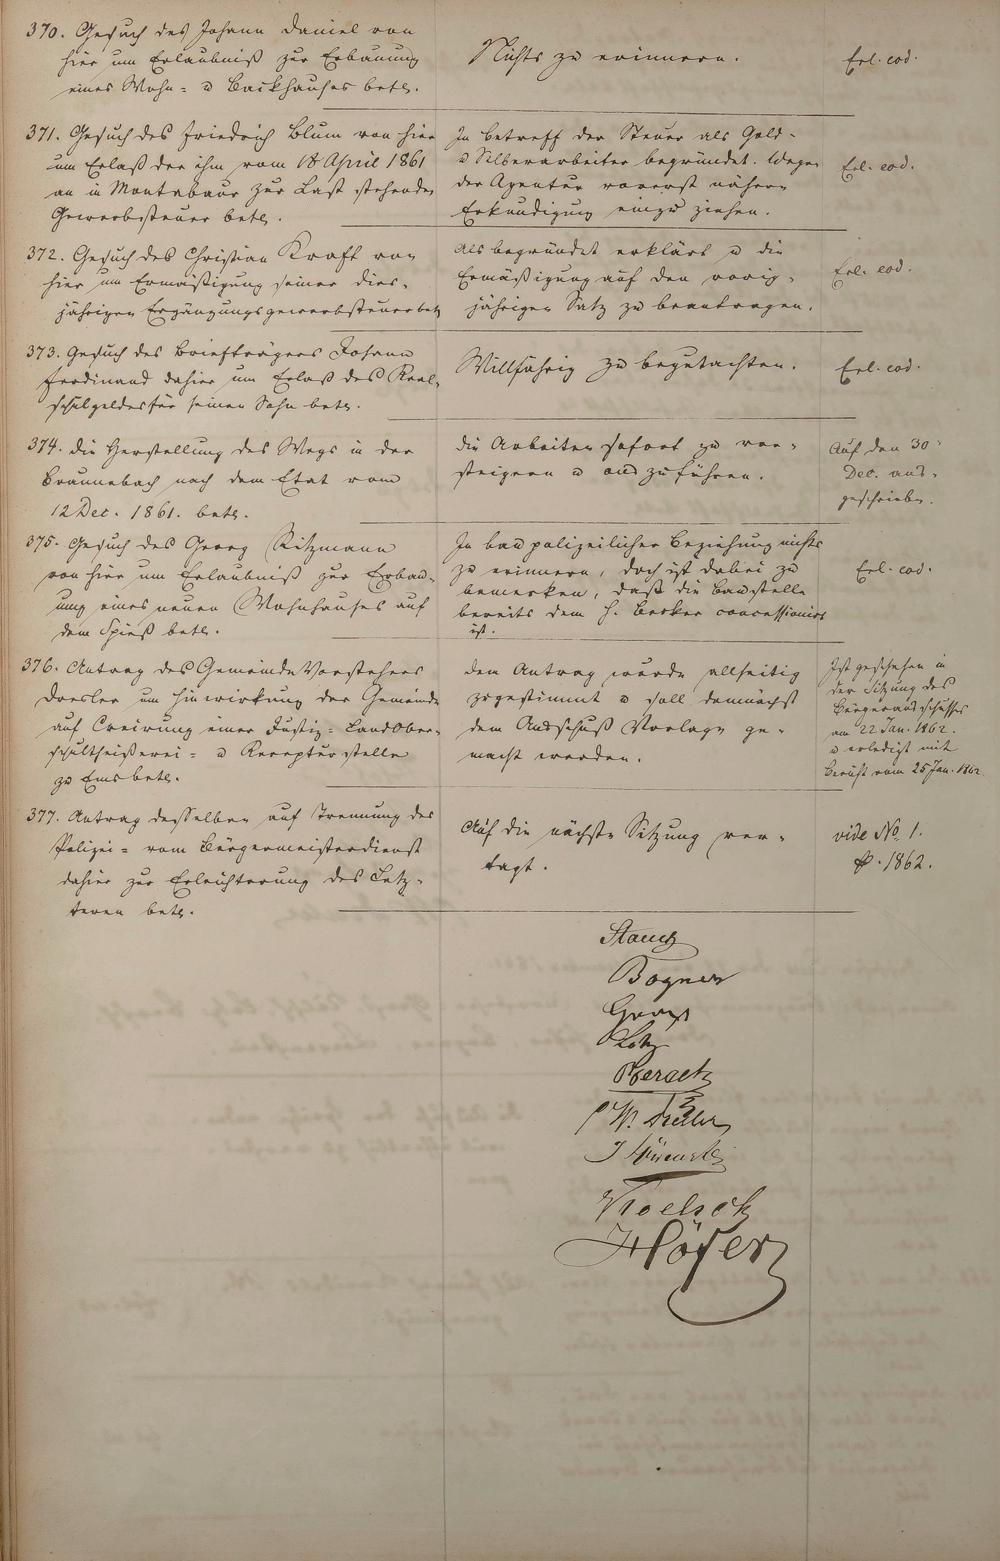 370. Gesuch des Johann Daniel von
hier um Erlaubniß zur Erbauung
eines Wohn- u Backhauses betr.
Nichts zu erinnern.
Erl. eod.
371. Gesuch des Friedrich Blum von hier
um Erlaß der ihm vom April 1861
an in Montabaur zur Last stehenden
Gewerbsteuer betr.
In betreff der Steuer als Gold-
u Silberarbeiter begründet. Wegen
der Agentur vorerst nähere
Erkundigung einzuziehen.
Erl. eod.
372. Gesuch des Christian Kraft von
hier um Ermäßigung seiner dies-
jährigen Ergänzungsgewerbsteuer betr
Als begründet erklärt u die
Ermäßigung auf den vorig-
jährigen Satz zu beantragen.
Erl. eod.
373. Gesuch des Briefträgers Johann
Ferdinand dahier um Erlaß des Real-
schulgeldes für seinen Sohn betr.
Willfährig zu begutachten.
Erl. eod.
374. die Herstellung des Wegs in der
Braunebach nach dem Etat vom
12 Dec. 1861. betr.
die Arbeiten sofort zu ver-
steigern u auszuführen.
Auf den 30
Dec. aus-
geschrieben.
375. Gesuch des Georg Ritzmann
von hier um Erlaubniß zur Erbau-
ung eines neuen Wohnhauses auf
dem Spieß betr.
In baupolizeilicher Beziehung nichts
zu erinnern, doch ist dabei zu
bemerken, daß die Baustelle
bereits dem H. Becker concessionirt
ist.
Erl. eod.
376. Antrag des Gemeinde Vorstehers
Dresler um Hinwirkung der Gemeinde
auf Creirung einer Justiz- Landober-
schultheißerei- u Recepturstelle
zu Ems betr.
dem Antrag wurde allseitig
zugestimmt u soll demnächst
dem Ausschuß Vorlage ge-
macht werden.
Ist geschehen in
der Sitzung des
Bürgerausschusses
am 22 Jan. 1862.
u erledigt mit
Bericht vom 25 Jan. 1862
377. Antrag desselben auf Trennung des
Polizei- vom Bürgermeisterdienst
dahier zur Erleichterung des Letz-
teren betr.
Auf die nächste Sitzung ver-
tagt.
vide No. 1.
p. 1862.
Stauch
Bogner
Lotz
W.
Troelsch
Höfer